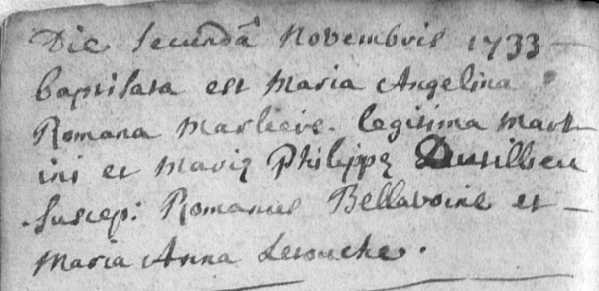 Die secundâ Novembris 1733
baptisata est Maria Angelina
Romana Marlieve. legitima Mart-
ini et Mariæ Philippæ Dutillieu
suscep: Romanus Bellavoine et
Maria Anna Lerouche.